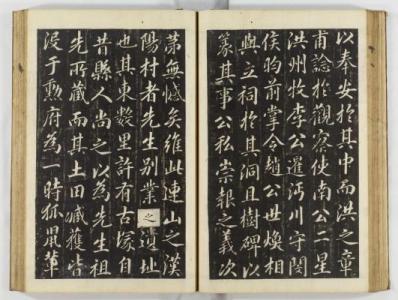 以奉安於其中而洪之章
甫諗於觀察使南公一星
洪州牧李公暹沔川守閔
侯昀前掌令趙公世煥相
與立祠於其洞且樹碑以
篆其事公私崇報之義次
苐無憾矣維此連山之漢
陽村者先生別業之遺址
也其東數里許有古塚自
昔縣人尚之以為先生祖
先所藏而其土田臧獲皆
沒于勳府為一時狐鼠輩